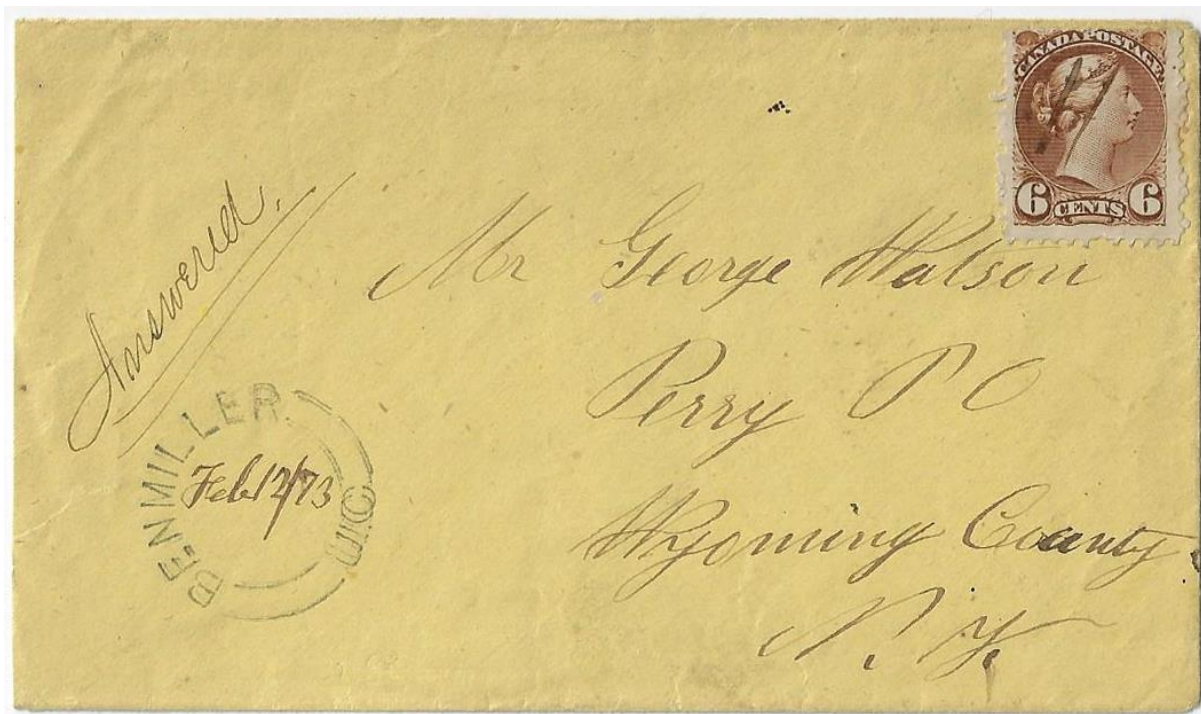 CANADA POSTAGE
6 CENTS 6
Answered.
Mr George Watson
Perry P O
Wyoming County
N. Y.
BENMILLER
U.C
Feb 12/73